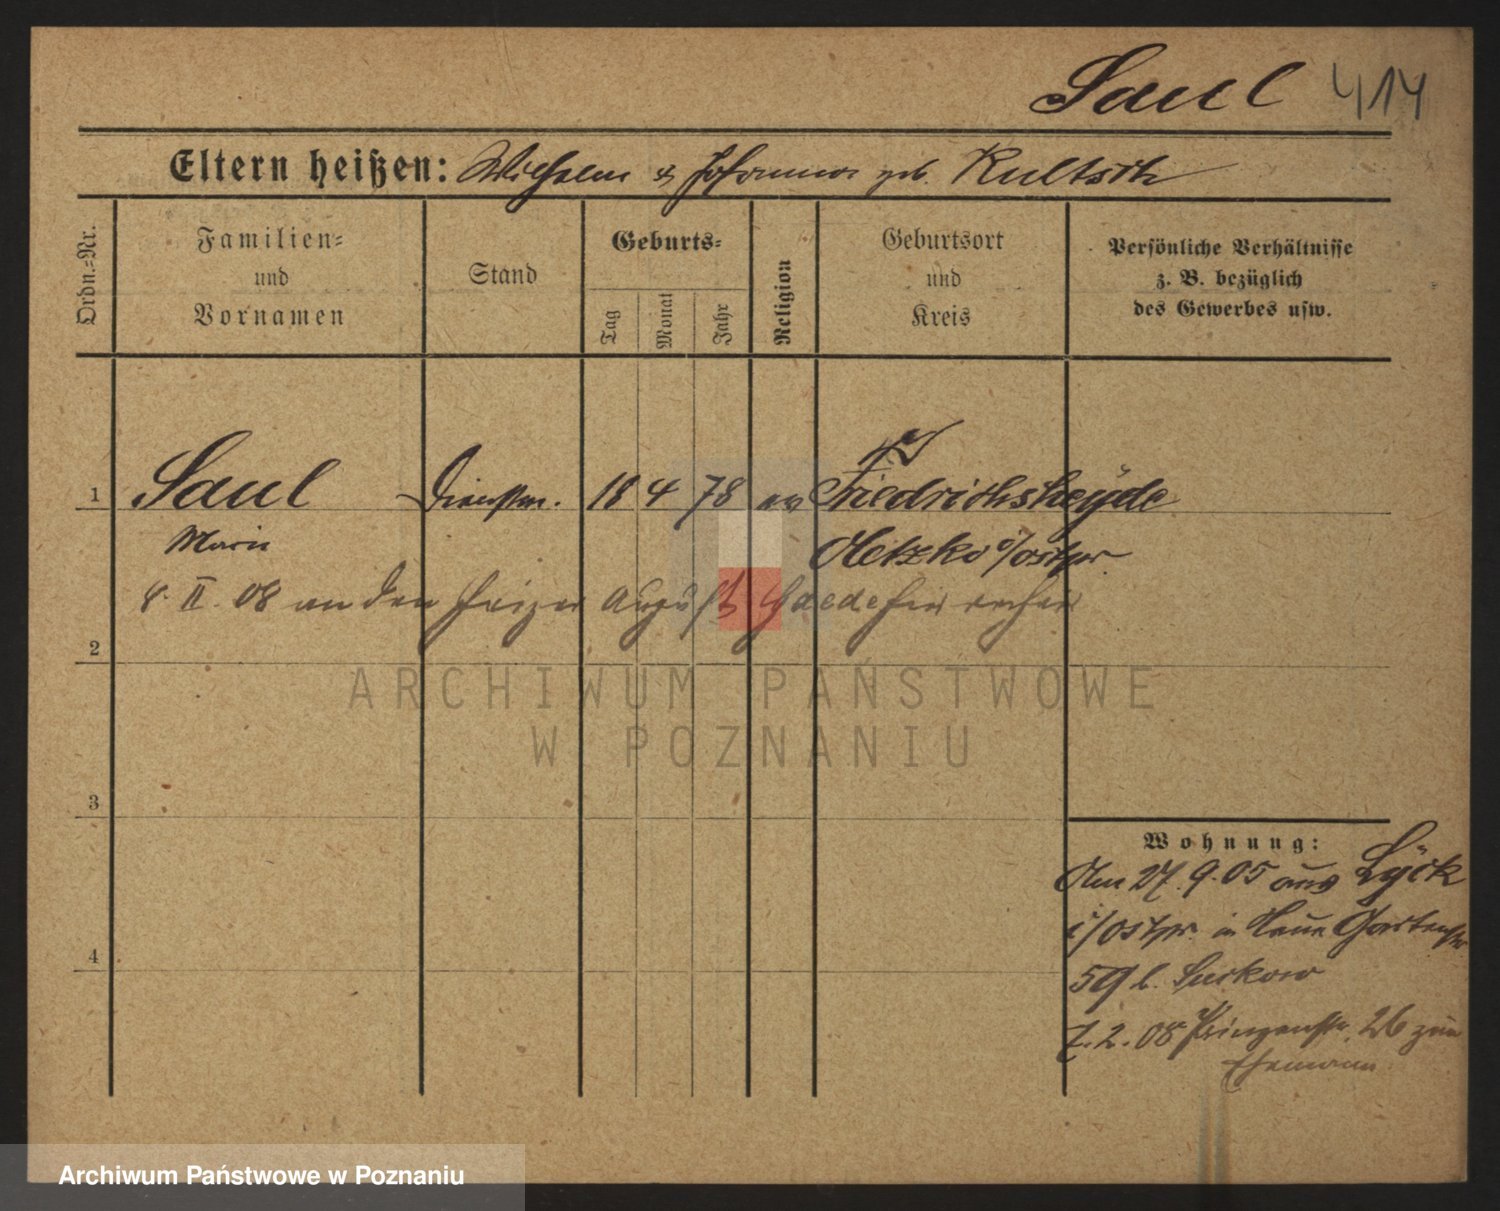 Saul 414
Eltern heißen: Wilhelm & Johanna geb. Kultsch
Ordn.-Nr.
Familien-
und
Vornamen
Stand
Geburts-
Tag
Monat
Jahr
Religion
Geburtsort
und
Kreis
Persönliche Verhältnisse
z. B. bezüglich
des Gewerbes usw.
1 Saul Dienstm. 18 4 78 ev Friedrichsheyde
Marie Oletzko i/Ostpr.
8. II. 08 an den Heizer August Gaede hier verheir
2
3
4
Wohnung:
Am 27. 9. 05 aus Lyck
i/Ostpr. in Neue Gartenstr
59 b. Surkow
7. 2. 08 Prinzenstr. 26 zum
Ehemann
ARCHIWUM PAŃSTWOWE
W POZNANIU
Archiwum Państwowe w Poznaniu